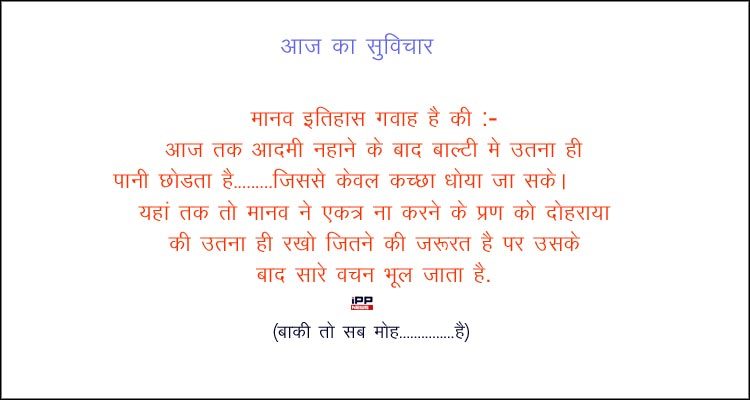 आज का सुविचार
मानव इतिहास गवाह है की :-
आज तक आदमी नहाने के बाद बाल्टी मे उतना ही
पानी छोडता है.........जिससे केवल कच्छा धोया जा सके।
यहां तक तो मानव ने एकत्र ना करने के प्रण को दोहराया
की उतना ही रखो जितने की जरूरत है पर उसके
बाद सारे वचन भूल जाता है.
iPP
(बाकी तो सब मोह...............है)